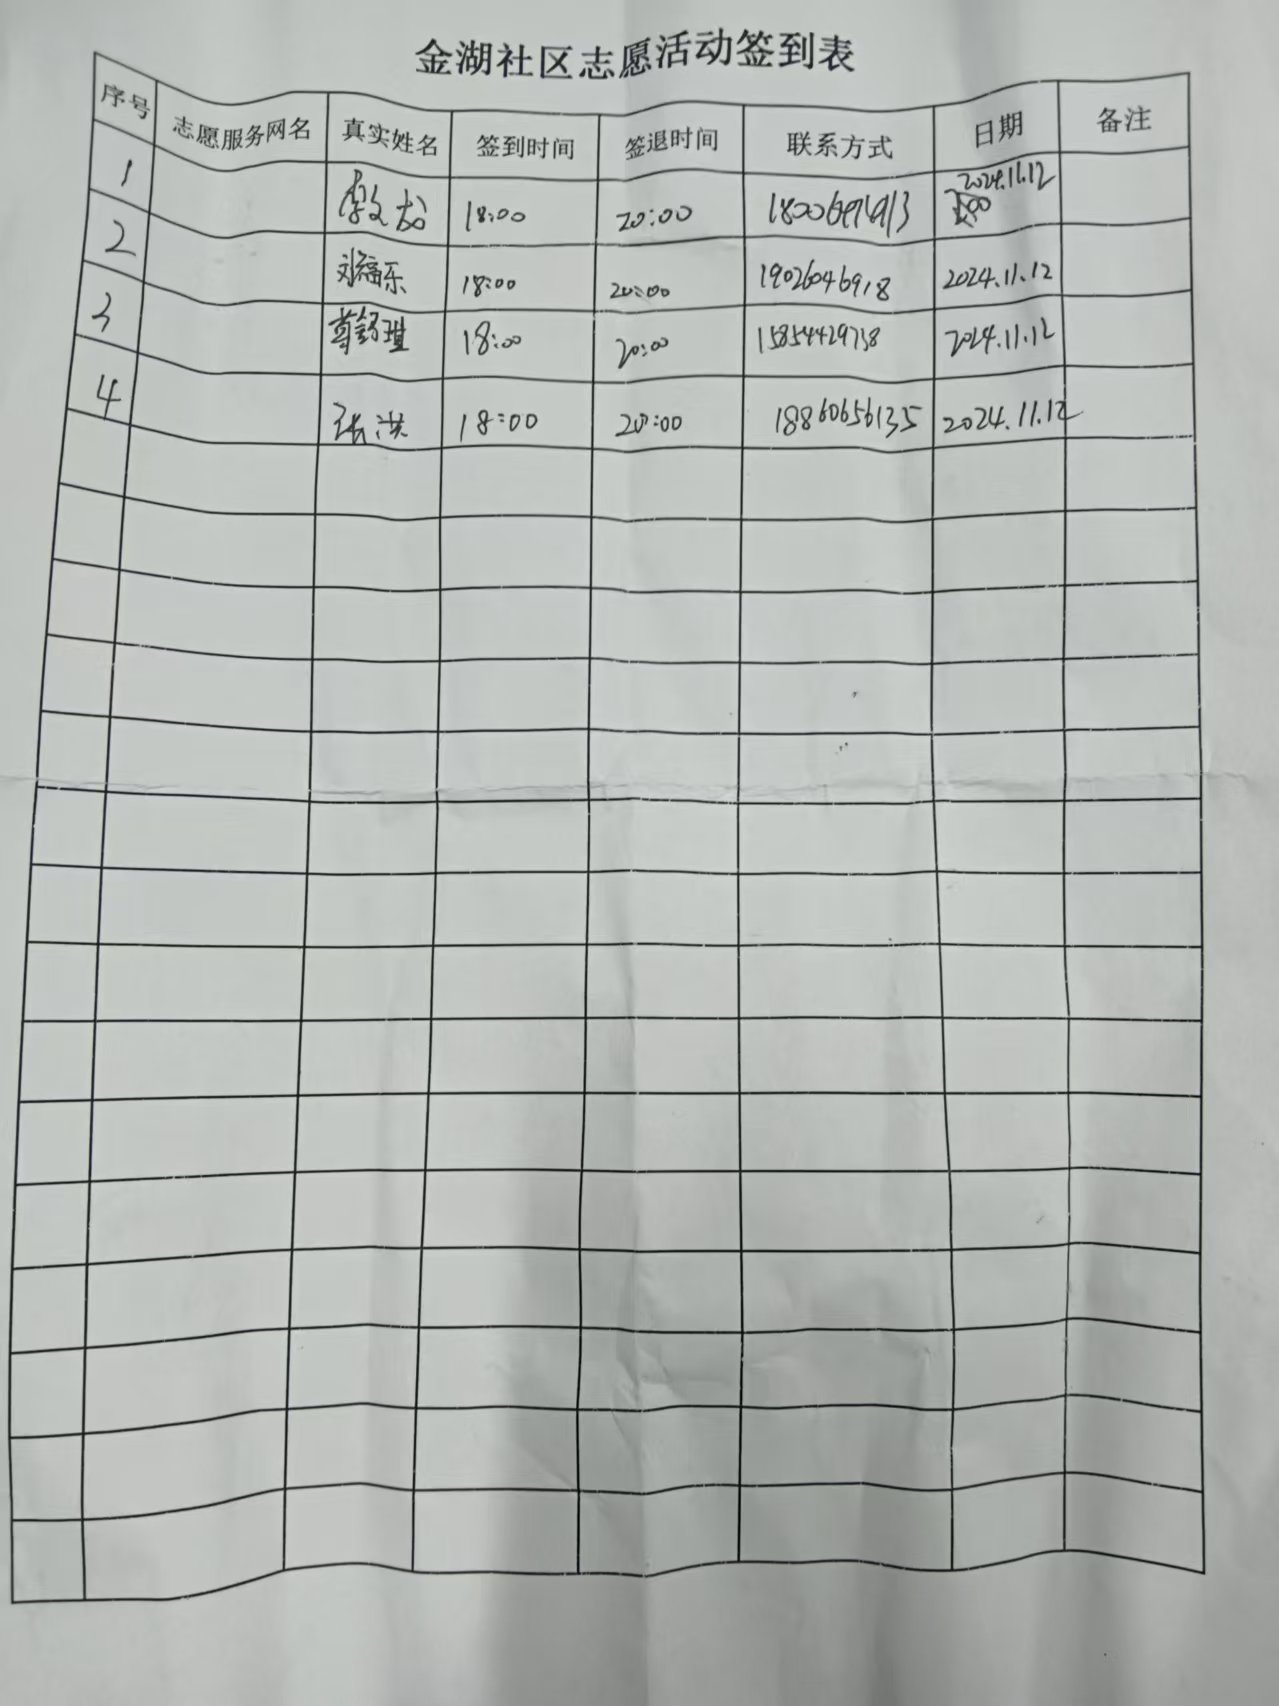 金湖社区志愿活动签到表
序号 志愿服务网名 真实姓名 签到时间 签退时间 联系方式 日期 备注
1 18:00 20:00 2024.11.12
2 18:00 20:00 19026046918 2024.11.12
3 18:00 20:00 15854429738 2024.11.12
4 张洪 18:00 20:00 18860656135 2024.11.12